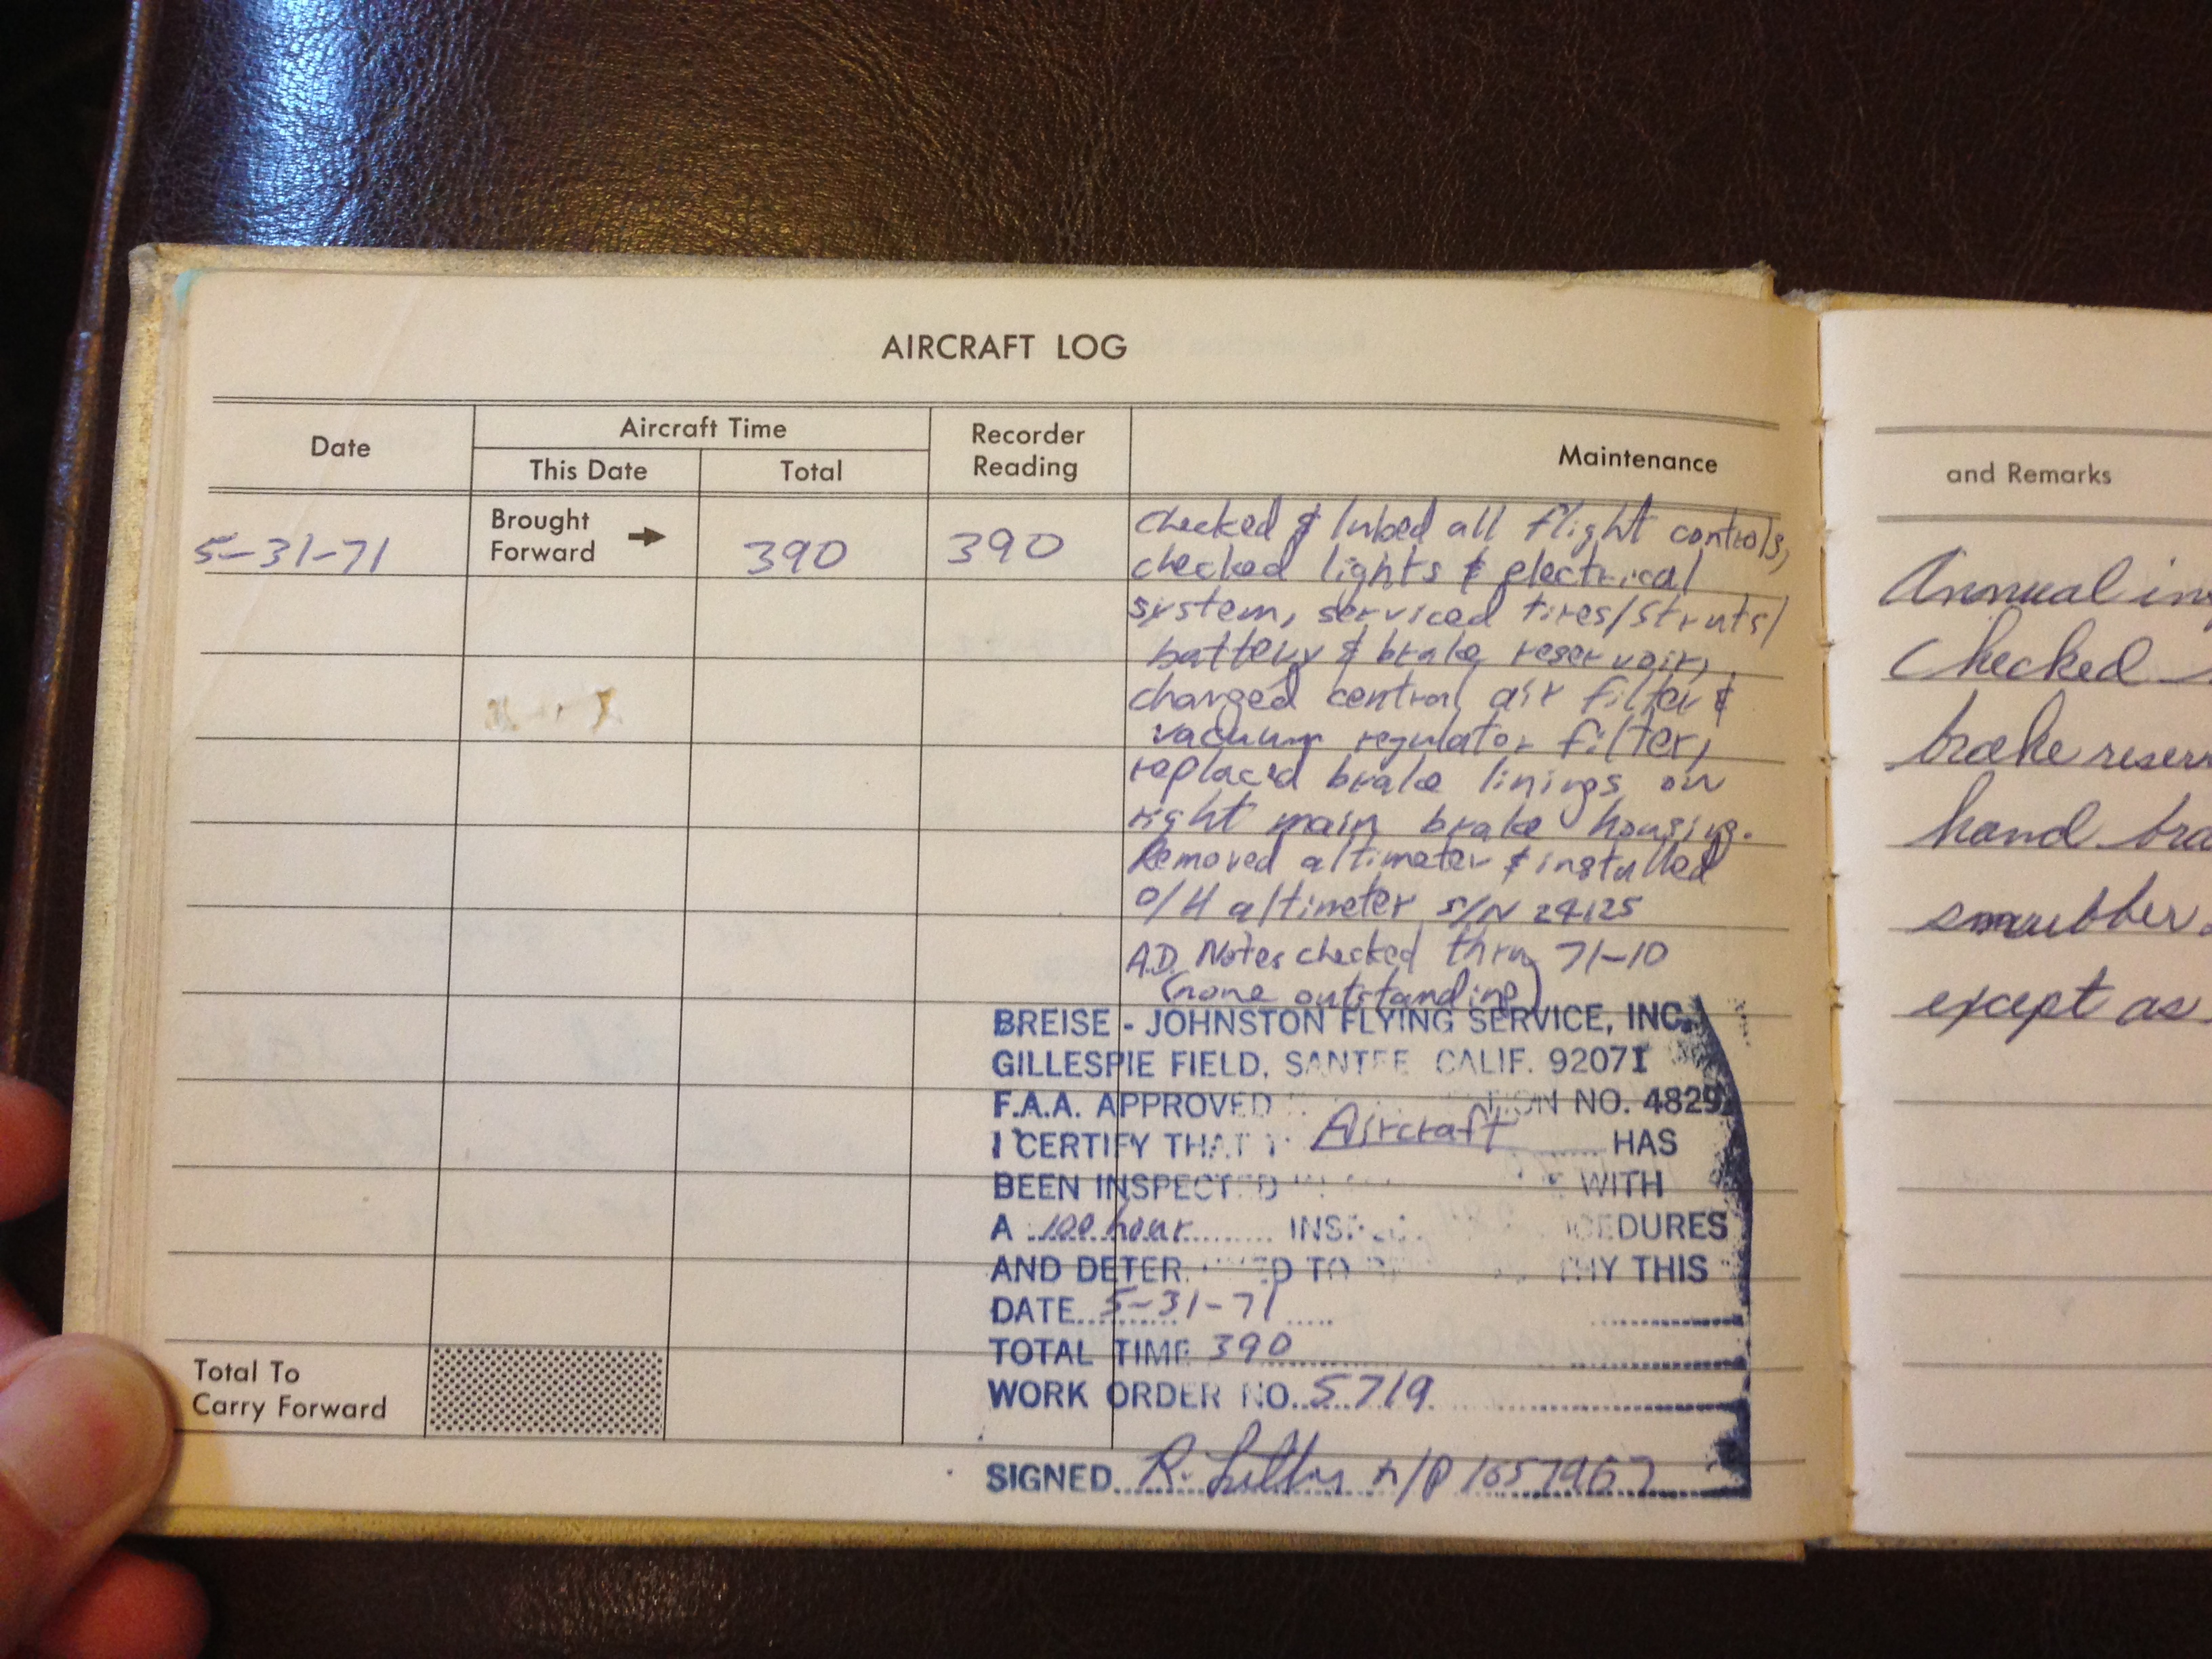 AIRCRAFT LOG
Date
Aircraft Time
This Date
Total
Recorder
Reading
Maintenance
5-31-71
Brought
Forward
390
390
checked & lubed all flight controls,
checked lights & electrical
system, serviced tires/struts/
battery & brake reservoir,
changed central air filter &
vacuum regulator filter,
replaced brake linings on
right main brake housing.
Removed altimeter & installed
O/H altimeter S/N 24125
A.D. Notes checked thru 71-10
(none outstanding)
BREISE - JOHNSTON FLYING SERVICE, INC.
GILLESPIE FIELD, SANTEE CALIF. 92071
F.A.A. APPROVED NO. 4829
I CERTIFY THAT Aircraft HAS
BEEN INSPECTED WITH
A 100 hour
AND TO THIS
DATE 5-31-71
TOTAL TIME 390
WORK ORDER NO. 5719
SIGNED R. 1657967
Total To
Carry Forward
and Remarks
Annual
Checked
brake
hand
except as